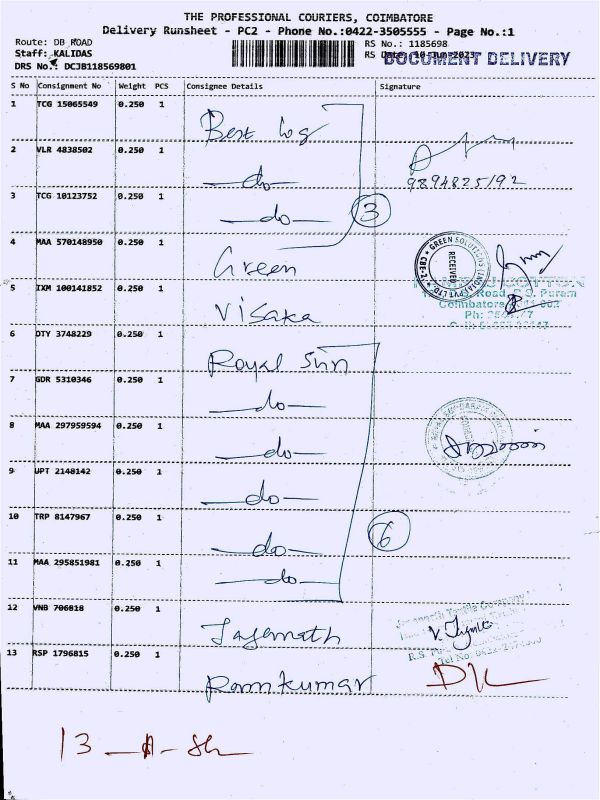 THE PROFESSIONAL COURIERS, COIMBATORE
Delivery Runsheet - PC2 - Phone No.:0422-3505555 - Page No.:1
Route: DB ROAD
RS No.: 1185698
Staff: KALIDAS
RS Date: 10-Jun-2023
DOCUMENT DELIVERY
DRS No.: DCJB118569801
S No Consignment No Weight PCS Consignee Details Signature
1 TCG 15065549 0.250 1 Best log
2 VLR 4838502 0.250 1 —do—
9894825192
3 TCG 10123752 0.250 1 —do— 3
4 MAA 570148950 0.250 1 Green
GREEN SOLUTIONS (INDIA) PVT LTD
RECEIVED
CBE-2
5 IXM 100141852 0.250 1 Visaka
COTTON
Road, R.S. Puram
Coimbatore
Ph:
6 DTY 3748229 0.250 1 Royal Sun
7 GDR 5310346 0.250 1 —do—
8 MAA 297959594 0.250 1 —do—
9 UPT 2148142 0.250 1 —do—
10 TRP 8147967 0.250 1 —do— 6
11 MAA 295851981 0.250 1 —do—
12 VNB 706818 0.250 1 Jagennath
Textile Company
R.S.
Tel No: 0422
13 RSP 1796815 0.250 1 Ramkumar
13